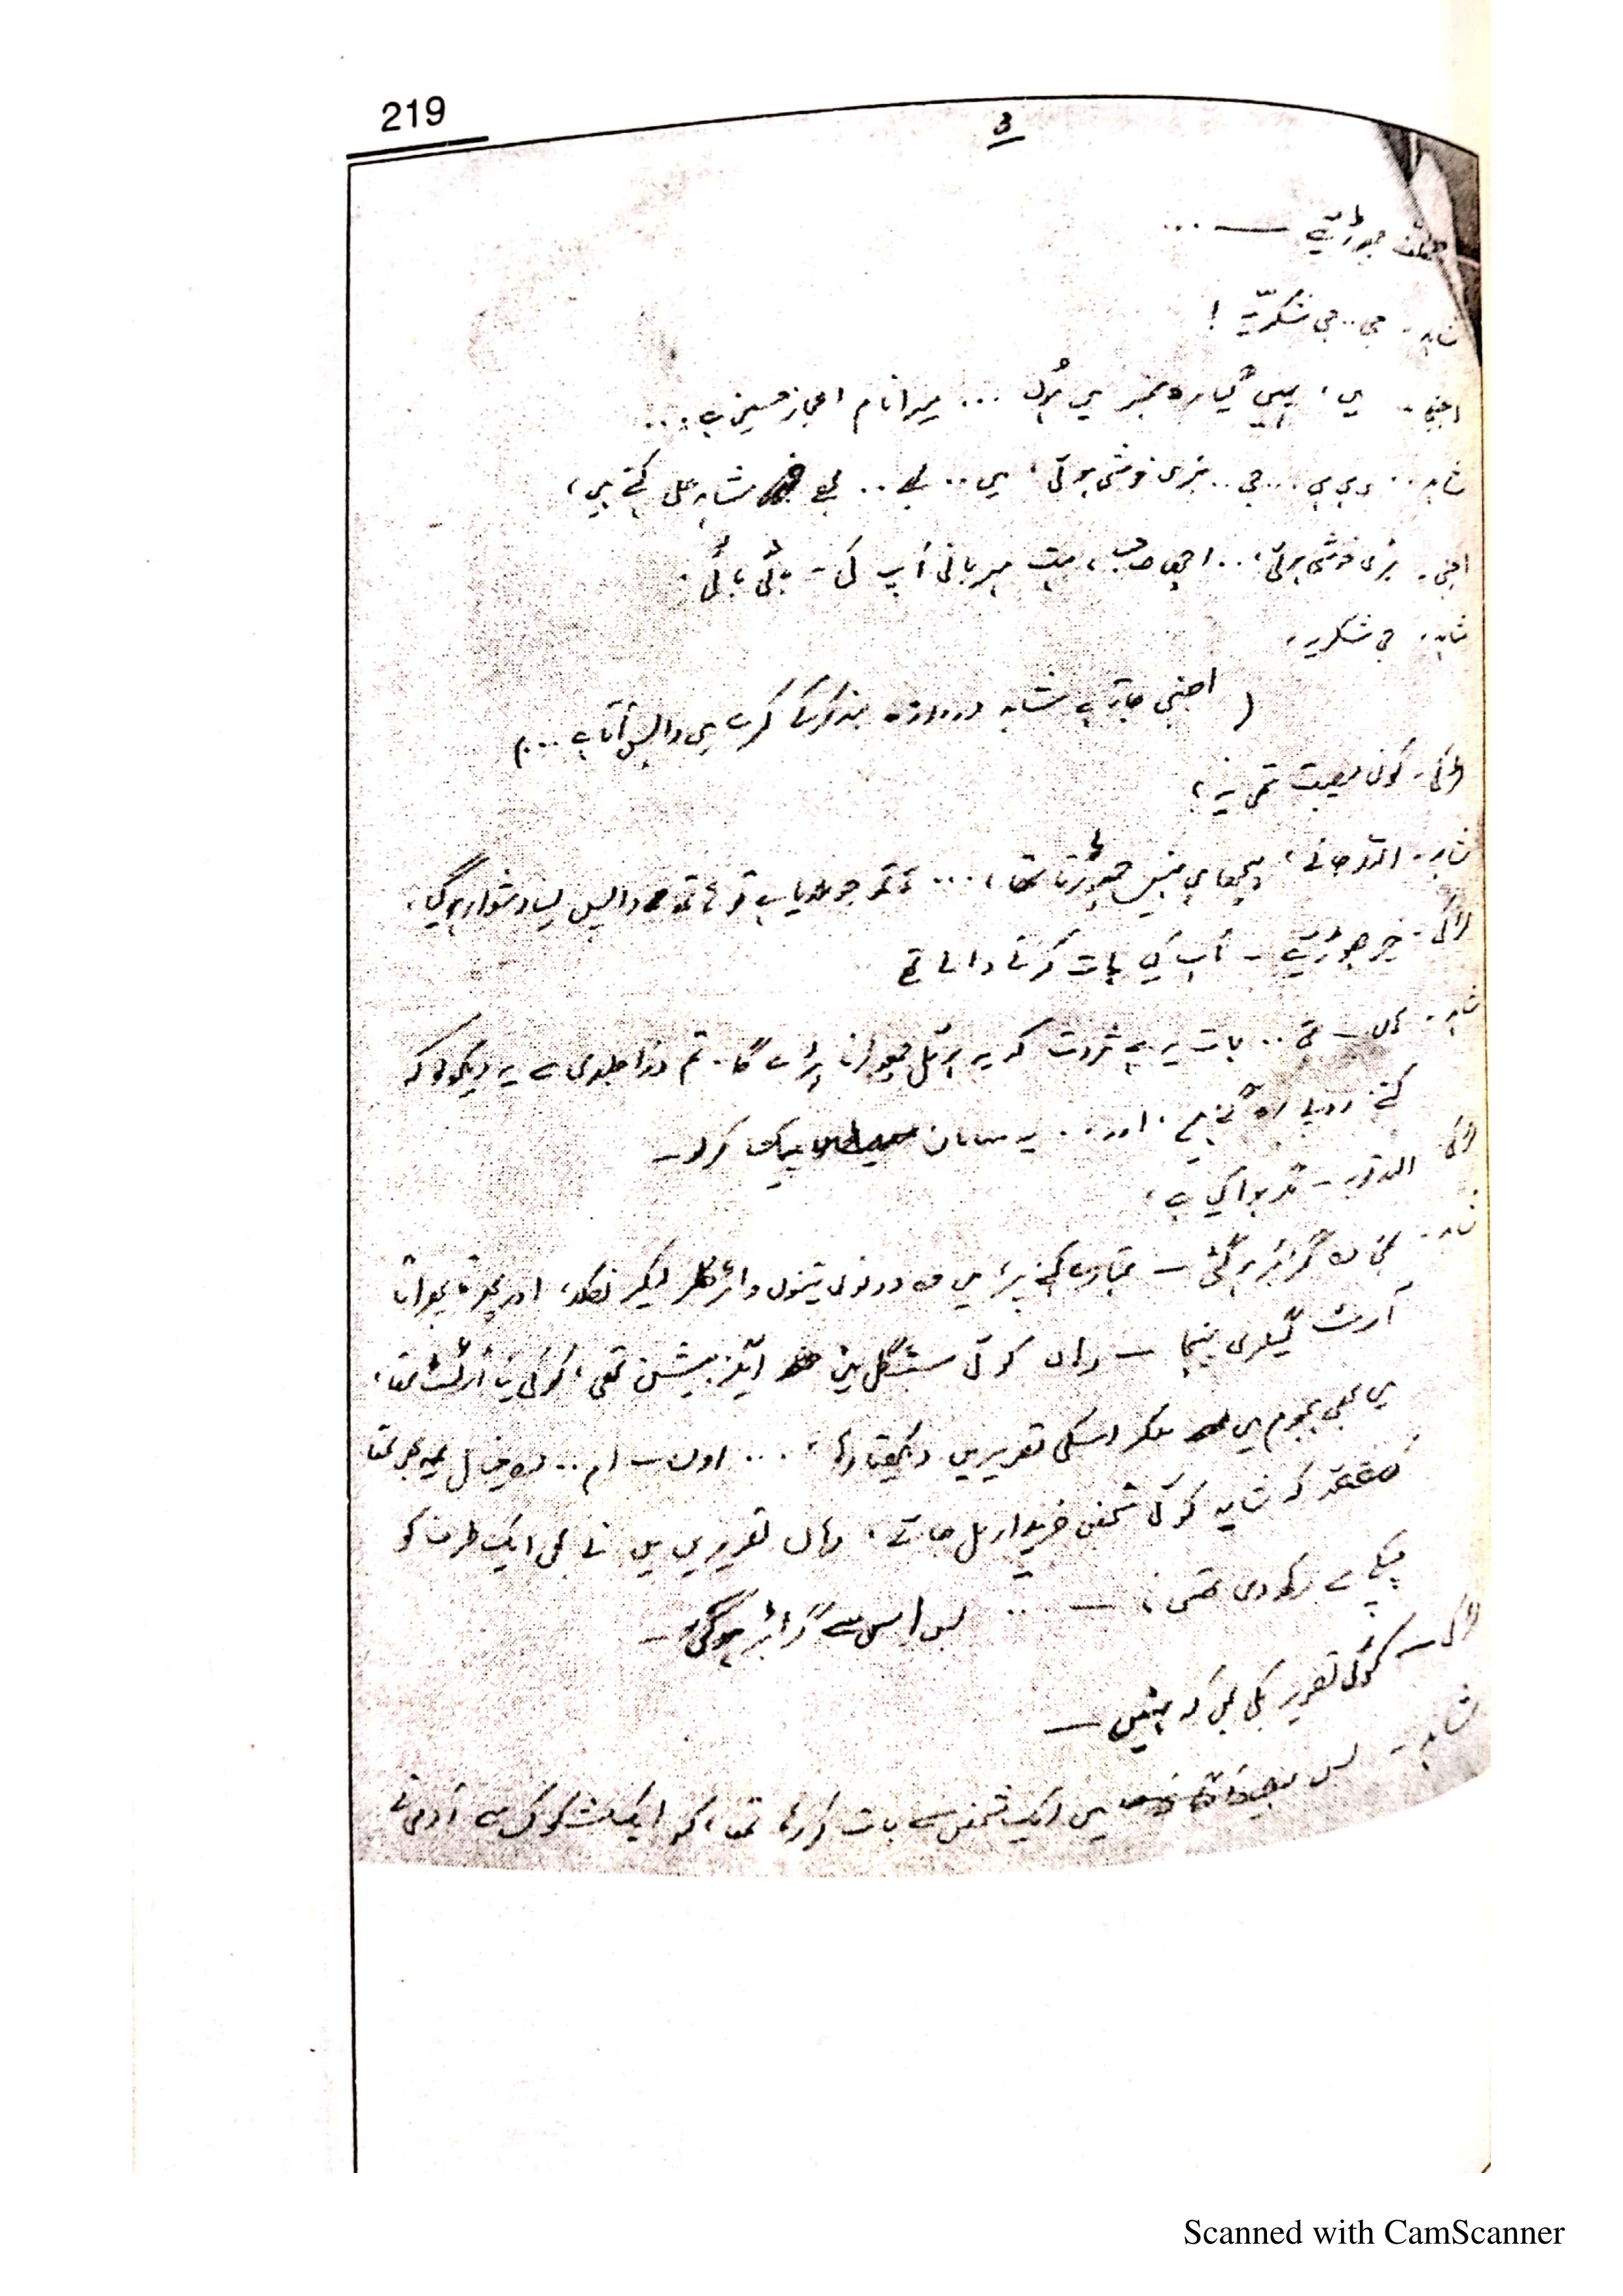 219
3
تکلف چھوڑئیے — ...
شاہد۔ جی .. جی شکریّہ !
اجنبی۔ میں، یہیں گیارہ نمبر میں ہُوں ... میرا نام اعجاز حسین ہے ...
شاہد .. جی .. بڑی خوشی ہوئی، میں .. مجھے شاہد علی کہتے ہیں،
اجنبی۔ بڑی خوشی ہوئی، .. اچھا صاحب، بہت مہربانی آپ کی۔ بائی بائی۔
شاہد۔ جی شکریہ۔
( اجنبی جاتا ہے شاہد دروازہ بند کرکے کمرے میں واپس آتا ہے ...)
لڑکی۔ کون مصیبت تھی یہ،
شاہد۔ اللہ جانے، پیچھا ہی نہیں چھوڑتا تھا، ... ہاتھ جو ملایا ہے تو ہاتھ واپس لینا دشوار ہوگیا،
لڑکی۔ خیر چھوڑئیے۔ آپ کیا بات کرنے والے تھے
شاہد۔ ہاں — .. بات یہ ہے ثروت کہ یہ ہوٹل چھوڑنا پڑے گا۔ تم ذرا جلدی سے یہ دیکھو کہ
کتنے روپے رہ گئے ہیں۔ اور .. یہ سامان پیک کرلو۔
لڑکی اللہ توبہ۔ ہوا کیا ہے،
شاہد۔ گڑبڑ ہوگئی — تمہارے کہنے پر میں وہ دونوں تینوں واٹر کلر لیکر نکلا، اور
آرٹ گیلری پہنچا — وہاں کوئی سنگل مین ایگزیبیشن تھی، کوئی نیا آرٹسٹ تھا،
میں بھی ہجوم میں ملکر اسکی تصویریں دیکھتا رہا، ...
کہ شاید کوئی شخص خریدار مل جائے، وہاں تصویریں میں نے بھی ایک طرف کو
چپکے سے رکھ دی تھیں، — ... بس اِسی سے گڑبڑ ہوگئی۔
لڑکی — کوئی تصویر بکی بھی کہ نہیں —
شاہد۔ بس میں ایک شخص سے بات کر رہا تھا، کہ ایک سے آدمی نے